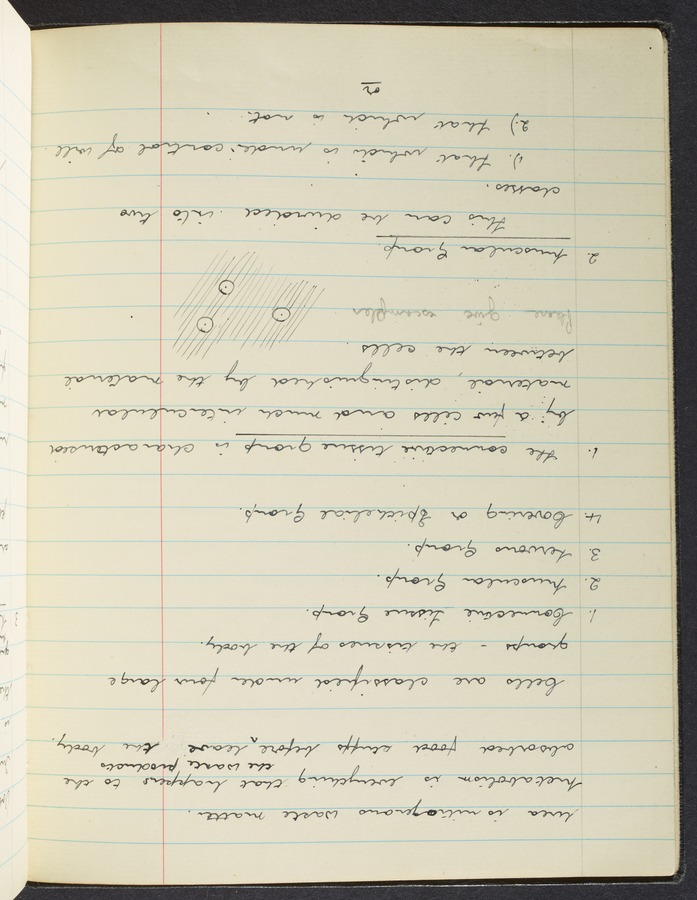 Urea is nitrogenous waste matter.
Metabolism is everything that happens to the
absorbed food stuffs before the waste products leave the body.
Cells are classified under four large
groups - the tissues of the body.
1. Connective Tissue Group.
2. Muscular Group.
3. Nervous Group.
4. Covering or Epithelial Group.
1. The connective tissue group is characterised
by a few cells and much intercellular
material, distinguished by the material
between the cells.
Please give examples
2. Muscular Group.
This can be divided into two
classes.
1) that which is under control of will.
2) that which is not.
or